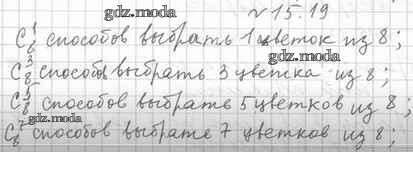 gdz.moda №15.19
C₆¹ способов выбрать 1 цветок из 8;
gdz.moda
C₈³ способов выбрать 3 цветка из 8;
gdz.moda
C₈⁵ способов выбрать 5 цветков из 8;
gdz.moda
C₈⁷ способов выбрате 7 цветков из 8;
gdz.moda